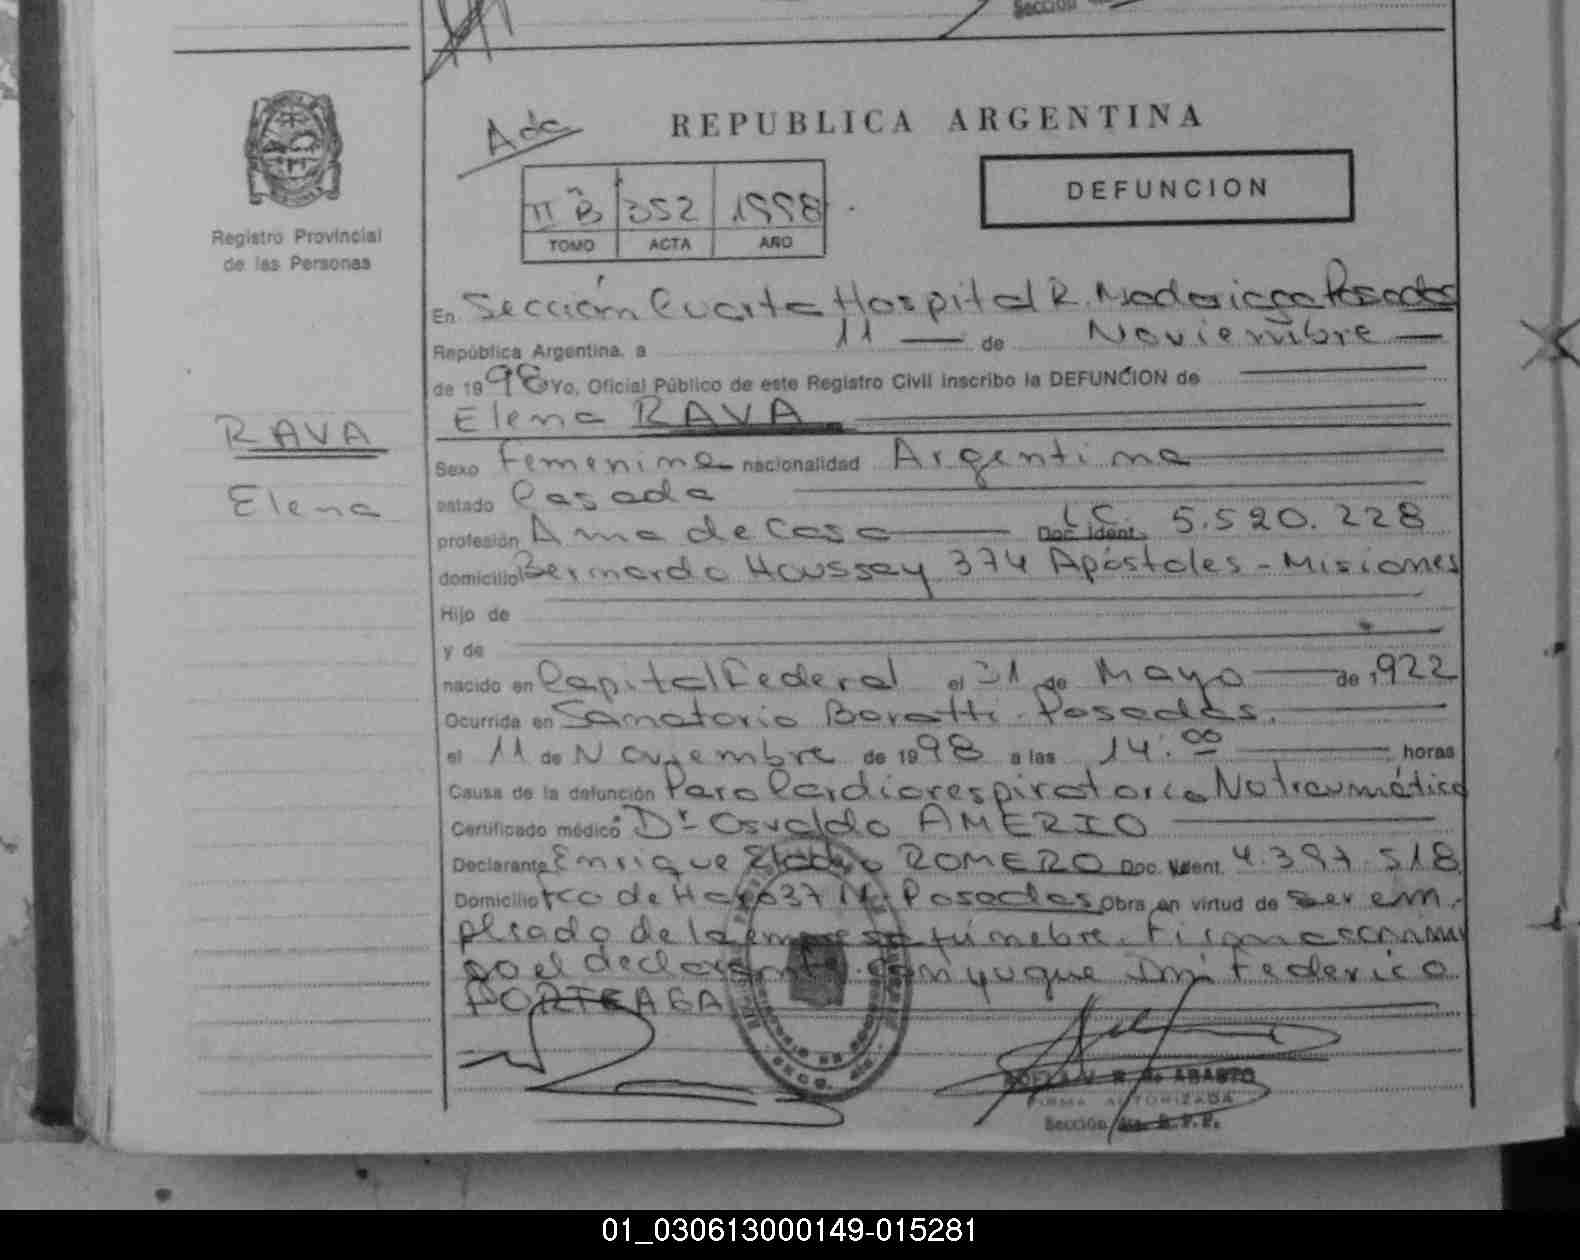 Sección
Ada
REPUBLICA ARGENTINA
II B 352 1998
TOMO ACTA AÑO
DEFUNCION
Registro Provincial
de las Personas
En Sección Cuarta Hospital R. Madariaga Posadas
República Argentina, a 11 de Noviembre
de 1998 Yo, Oficial Público de este Registro Civil inscribo la DEFUNCION de
Elena RAVA
RAVA
Elena
Sexo femenina nacionalidad Argentina
estado Casada
profesión Ama de Casa Doc. Ident. L.C. 5.520.228
domicilio Bernardo Houssay 374 Apóstoles - Misiones
Hijo de
y de
nacido en Capital Federal el 31 de Mayo de 1922
Ocurrida en Sanatorio Boratti - Posadas.
el 11 de Noviembre de 1998 a las 14:00 horas
Causa de la defunción Paro Cardiorespiratorio No traumático
Certificado médico Dr. Osvaldo AMERIO
Declarante Enrique Eladio ROMERO Doc. Ident. 4.397.518
Domicilio Fco de Haro 37 Posadas Obra en virtud de ser em-
pleado de la empresa fúnebre. Firma conmi
go el declarante. Cónyugue Federico
PORTEAGA
FIRMA AUTORIZADA
Sección 4ta. R.P.P.
01_030613000149-015281